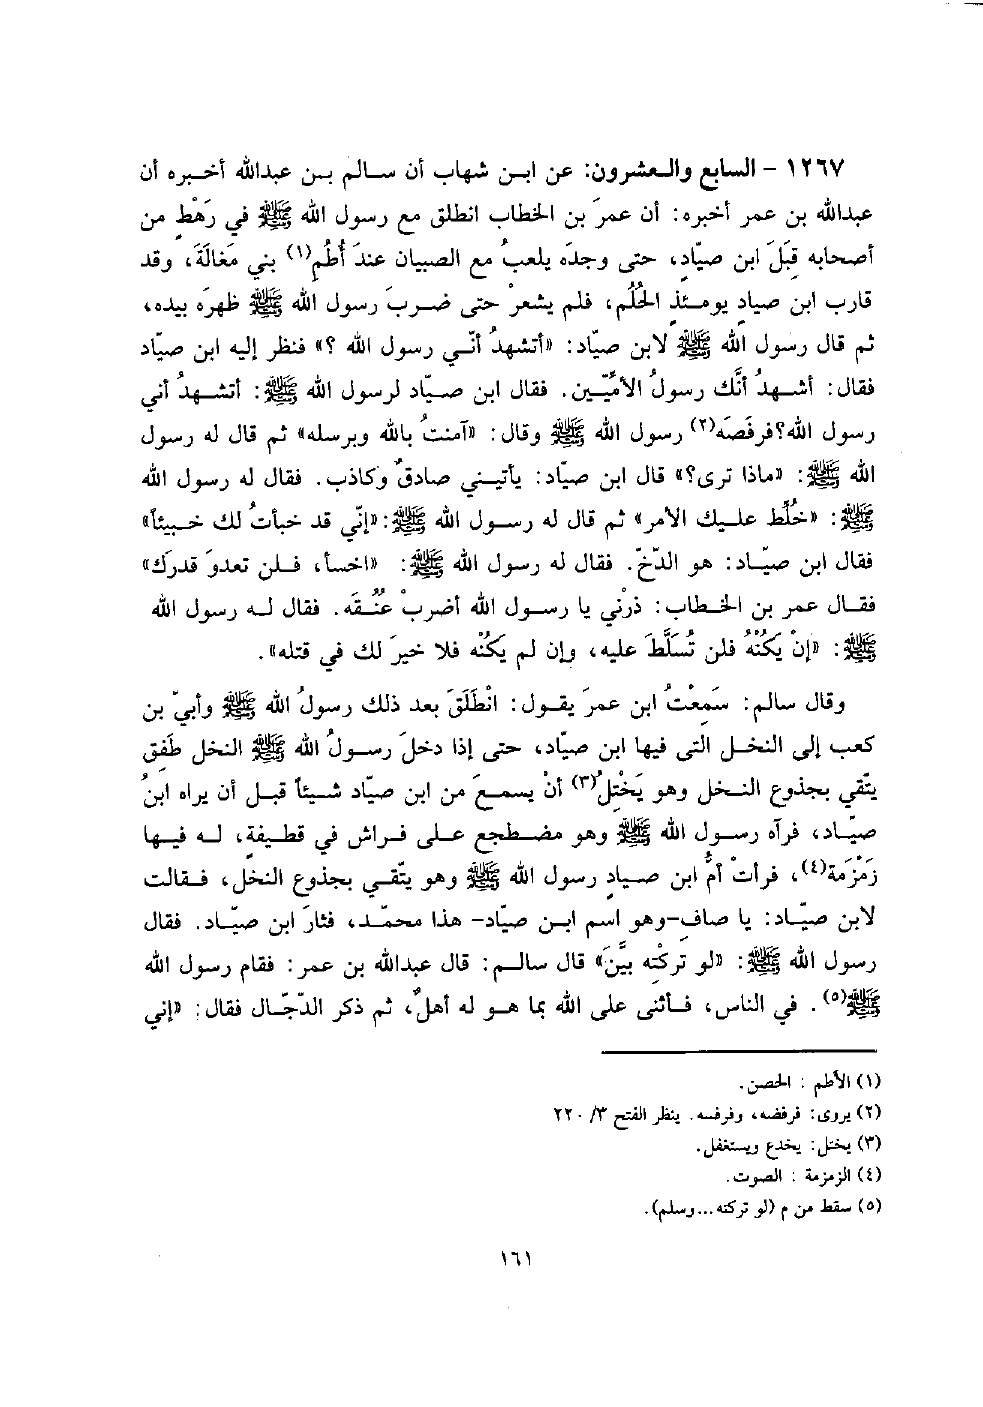 ١٢٦٧ - السابع والعشرون: عن ابن شهاب أن سالم بن عبدالله أخبره أن
عبدالله بن عمر أخبره: أن عمرَ بن الخطاب انطلق مع رسول الله ﷺ في رَهْطٍ من
أصحابه قِبَلَ ابن صيّادٍ، حتى وجدَه يلعبُ مع الصبيان عندَ أُطُمِ(١) بني مَغالَةَ، وقد
قارب ابن صيادٍ يومئذٍ الحُلُم، فلم يشعرْ حتى ضربَ رسول الله ﷺ ظهرَه بيده،
ثم قال رسول الله ﷺ لابن صيّاد: «أتشهدُ أنّي رسول الله ؟» فنظر إليه ابن صيّاد
فقال: أشهدُ أنَّك رسولُ الأمّيّين. فقال ابن صيّاد لرسول الله ﷺ: أتشهدُ أني
رسول الله؟فرفَصَه(٢) رسول الله ﷺ وقال: «آمنتُ بالله وبرسله» ثم قال له رسول
الله ﷺ: «ماذا ترى؟» قال ابن صيّاد: يأتيني صادقٌ وكاذب. فقال له رسول الله
ﷺ: «خُلِّط عليك الأمر» ثم قال له رسول الله ﷺ:«إنّي قد خبأتُ لك خبيئاً»
فقال ابن صيّاد: هو الدّخّ. فقال له رسول الله ﷺ: «اخسأ، فلن تعدوَ قدرَك»
فقال عمر بن الخطاب: ذرْني يا رسول الله أضربْ عنُقَه. فقال له رسول الله
ﷺ: «إنْ يَكُنْهُ فلن تُسَلَّطَ عليه، وإن لم يَكُنْه فلا خيرَ لك في قتله».
وقال سالم: سَمِعْتُ ابن عمرَ يقول: انْطَلَقَ بعد ذلك رسولُ الله ﷺ وأبيّ بن
كعب إلى النخل التي فيها ابن صيّاد، حتى إذا دخلَ رسولُ الله ﷺ النخل طَفِق
يتّقي بجذوع النخل وهو يَخْتِلُ(٣) أنْ يسمعَ من ابن صيّاد شيئاً قبل أن يراه ابنُ
صيّاد، فرآه رسول الله ﷺ وهو مضطجع على فراش في قطيفة، له فيها
زَمْزَمة(٤)، فرأتْ أمُّ ابن صيادٍ رسول الله ﷺ وهو يتّقي بجذوع النخل، فقالت
لابن صيّاد: يا صافِ-وهو اسم ابن صيّاد- هذا محمّد، فثارَ ابن صيّاد. فقال
رسول الله ﷺ: «لو تركتْه بيَّن» قال سالم: قال عبدالله بن عمر: فقام رسول الله
ﷺ(٥). في الناس، فأثنى على الله بما هو له أهلٌ، ثم ذكر الدّجّال فقال: «إني
(١) الأطم : الحصن.
(٢) يروى: فرفضه، وفرفسه. ينظر الفتح ٣/ ٢٢٠
(٣) يختل: يخدع ويستغفل.
(٤) الزمزمة : الصوت.
(٥) سقط من م (لو تركته...وسلم).
١٦١